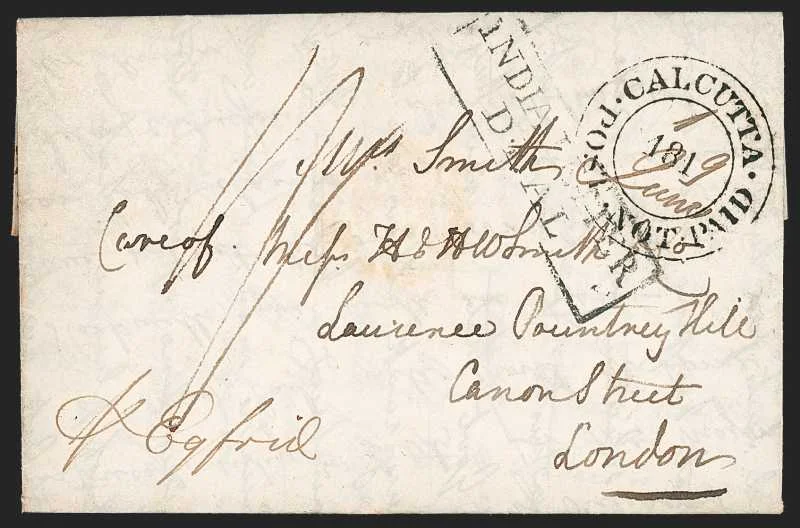 INDIA LETTER
DEAL
CALCUTTA
POST NOT PAID
1
1819
June
Mrs Smith
Care of Messrs H & HW Smith
Laurence Pountney Hill
Canon Street
London
Egfrid